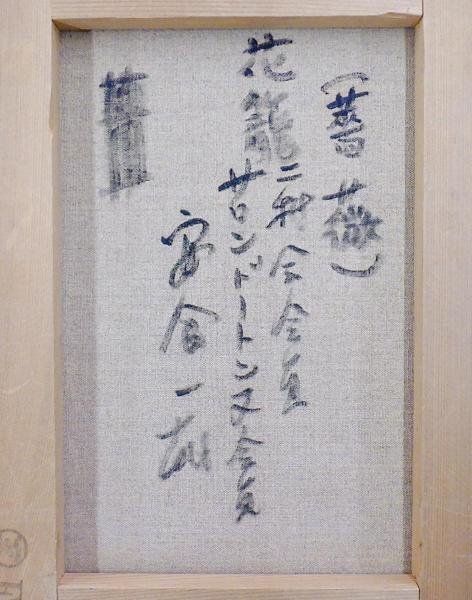 (薔薇)
花籠
二科会会員
サロンドートンヌ会員
安食一雄